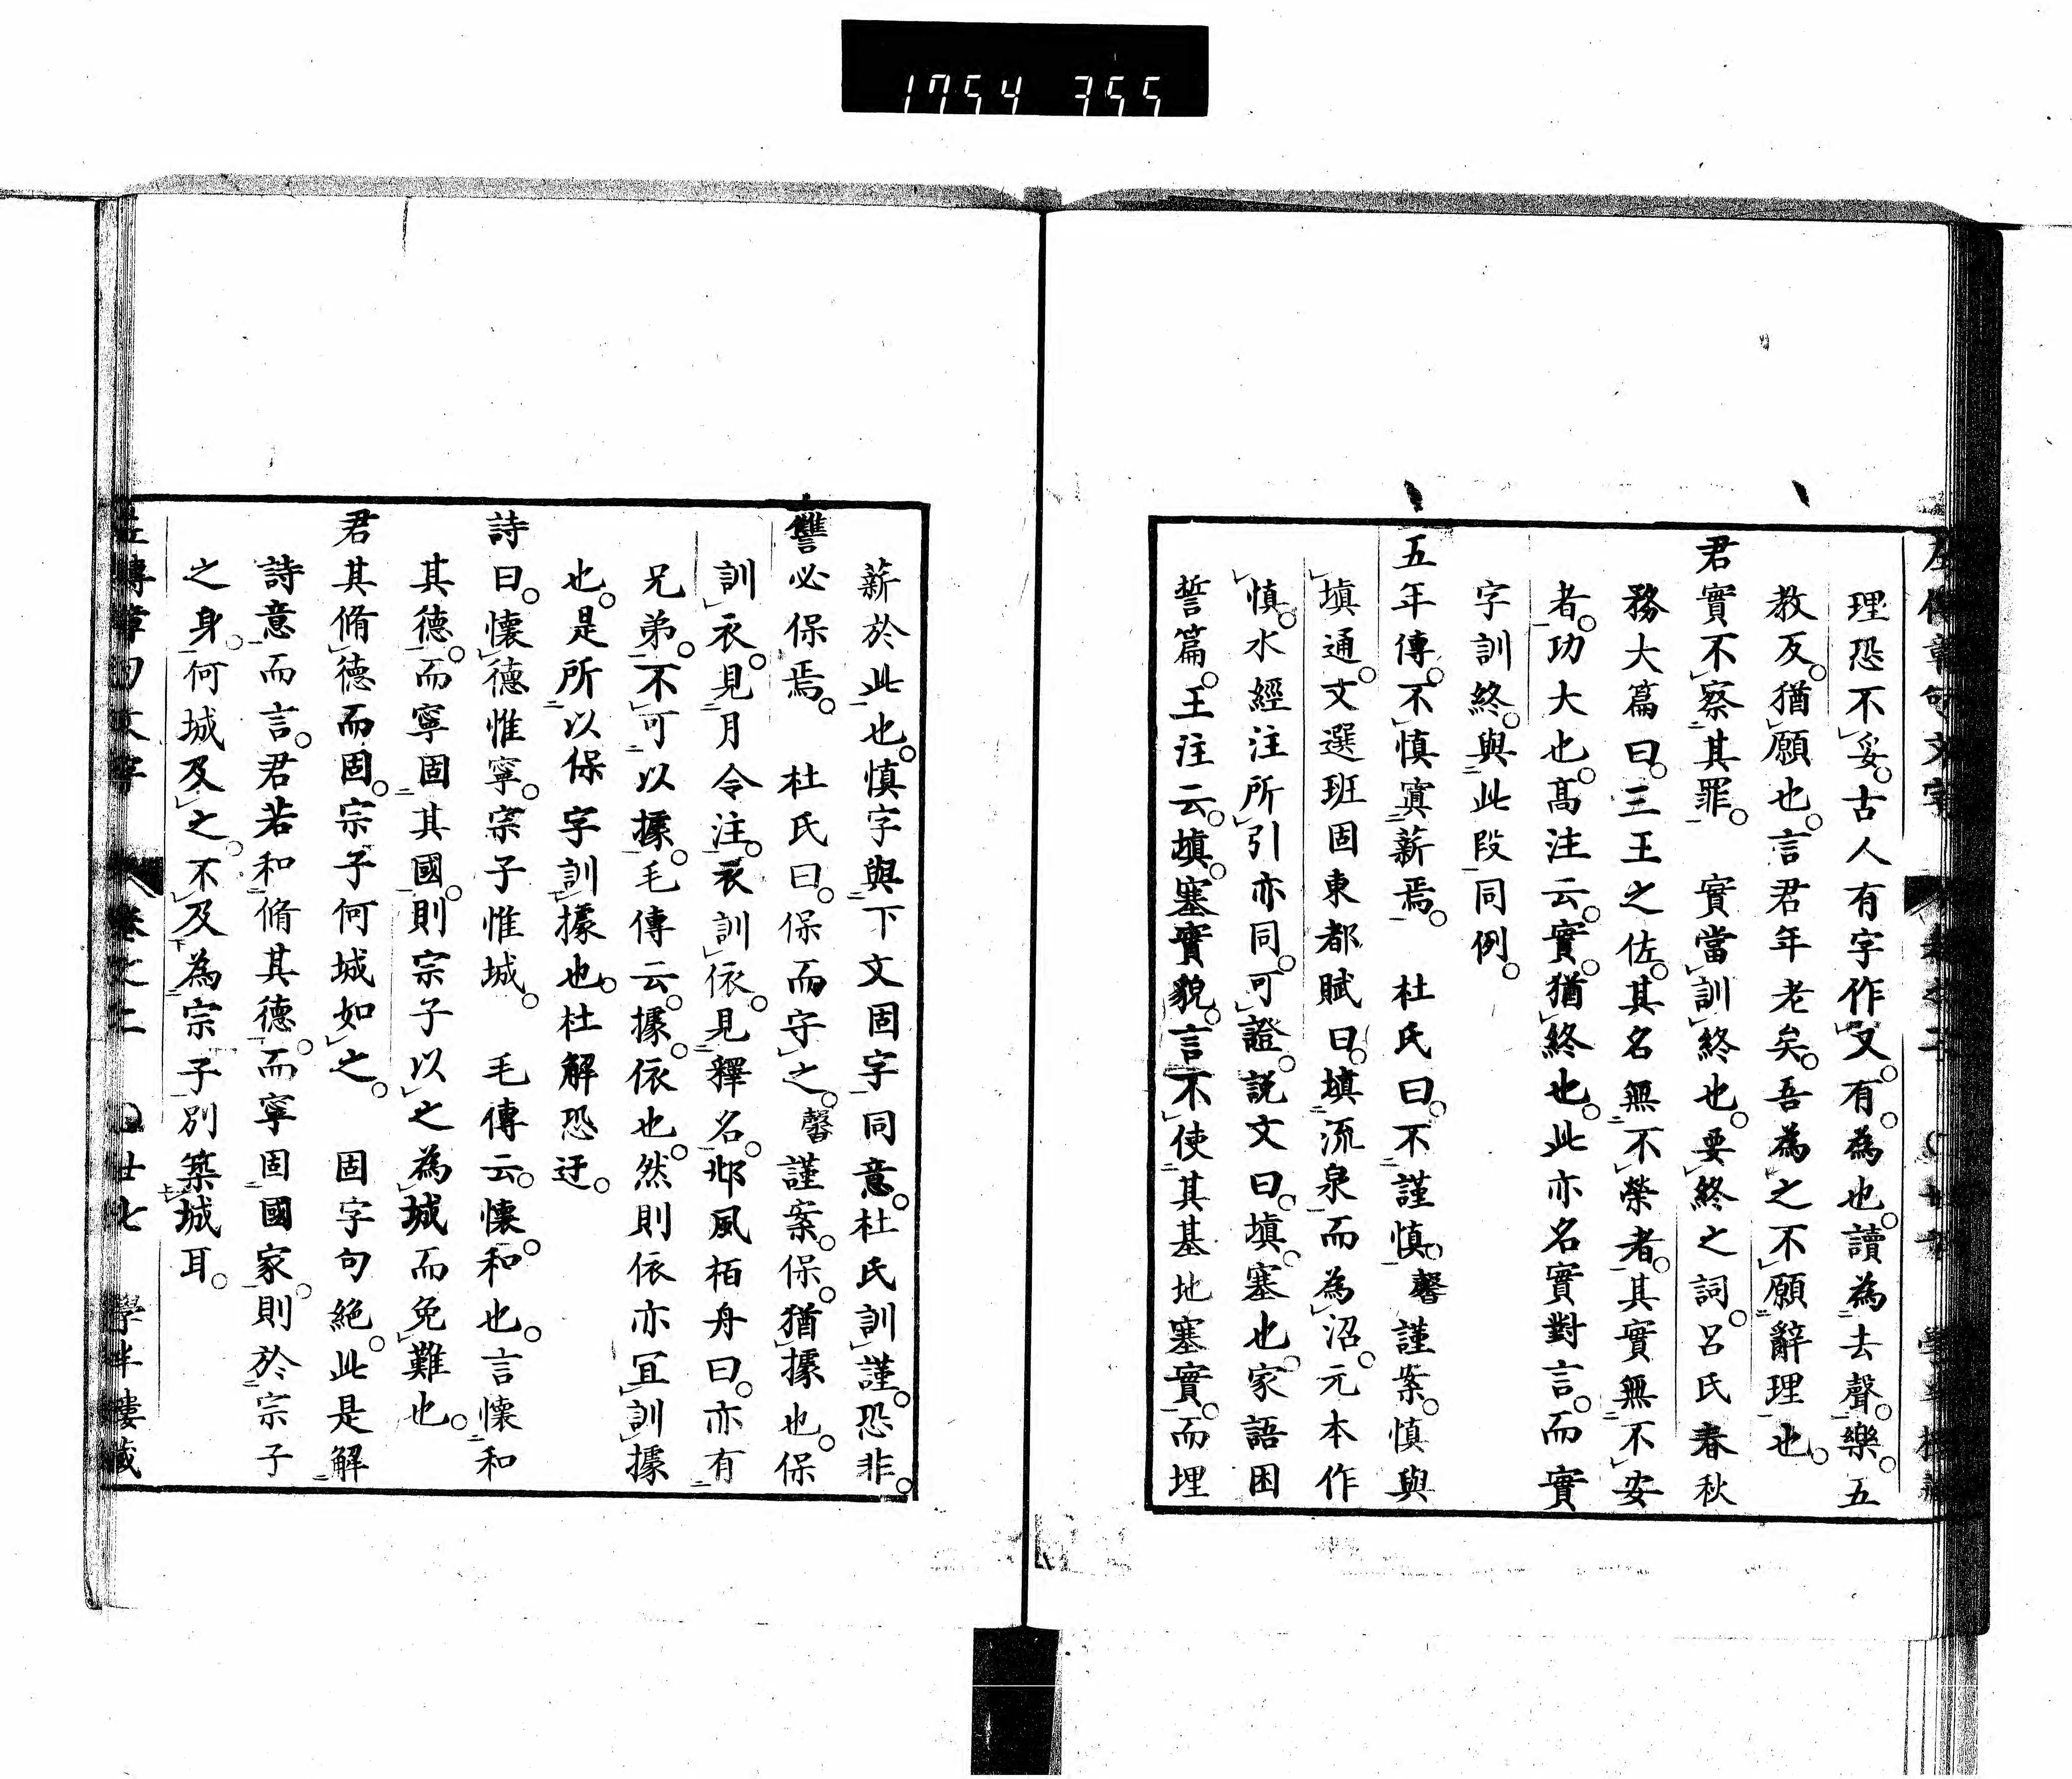 1754 355
理恐不妥。古人有字作又。有。為也。讀為去聲。樂。五
教反。猶願也。言君年老矣。吾為之不願辭理也。
君實不察其罪。　實當訓終也。要終之詞。呂氏春秋
務大篇曰。三王之佐。其名無不榮者。其實無不安
者。功大也。高注云。實。猶終也。此亦名實對言。而實
字訓終。與此段同例。
五年傳。不慎寘薪焉。　杜氏曰。不謹慎。馨謹案。慎與
填通。文選班固東都賦曰。填流泉而為沼。元本作
慎。水經注所引亦同。可證。説文曰。填。塞也。家語困
誓篇。王注云。填。塞實貌。言不使其基地塞實。而埋
薪於此也。慎字與下文固字同意。杜氏訓謹。恐非。
讐必保焉。　杜氏曰。保而守之。馨謹案。保。猶據也。保
訓衣。見月令注。衣訓依。見釋名。邶風栢舟曰。亦有
兄弟。不可以據。毛傳云。據。依也。然則依亦宜訓據
也。是所以保字訓據也。杜解恐迂。
詩曰。懷德惟寧。宗子惟城。　毛傳云。懷。和也。言懷和
其德。而寧固其國。則宗子以之為城而免難也。
君其脩德而固。宗子何城如之。　固字句絶。此是解
詩意而言。君若和脩其德。而寧固國家。則於宗子
之身。何城及之。不及為宗子別築城耳。
左傳章句文字　卷之二　〇廿七　學半樓藏